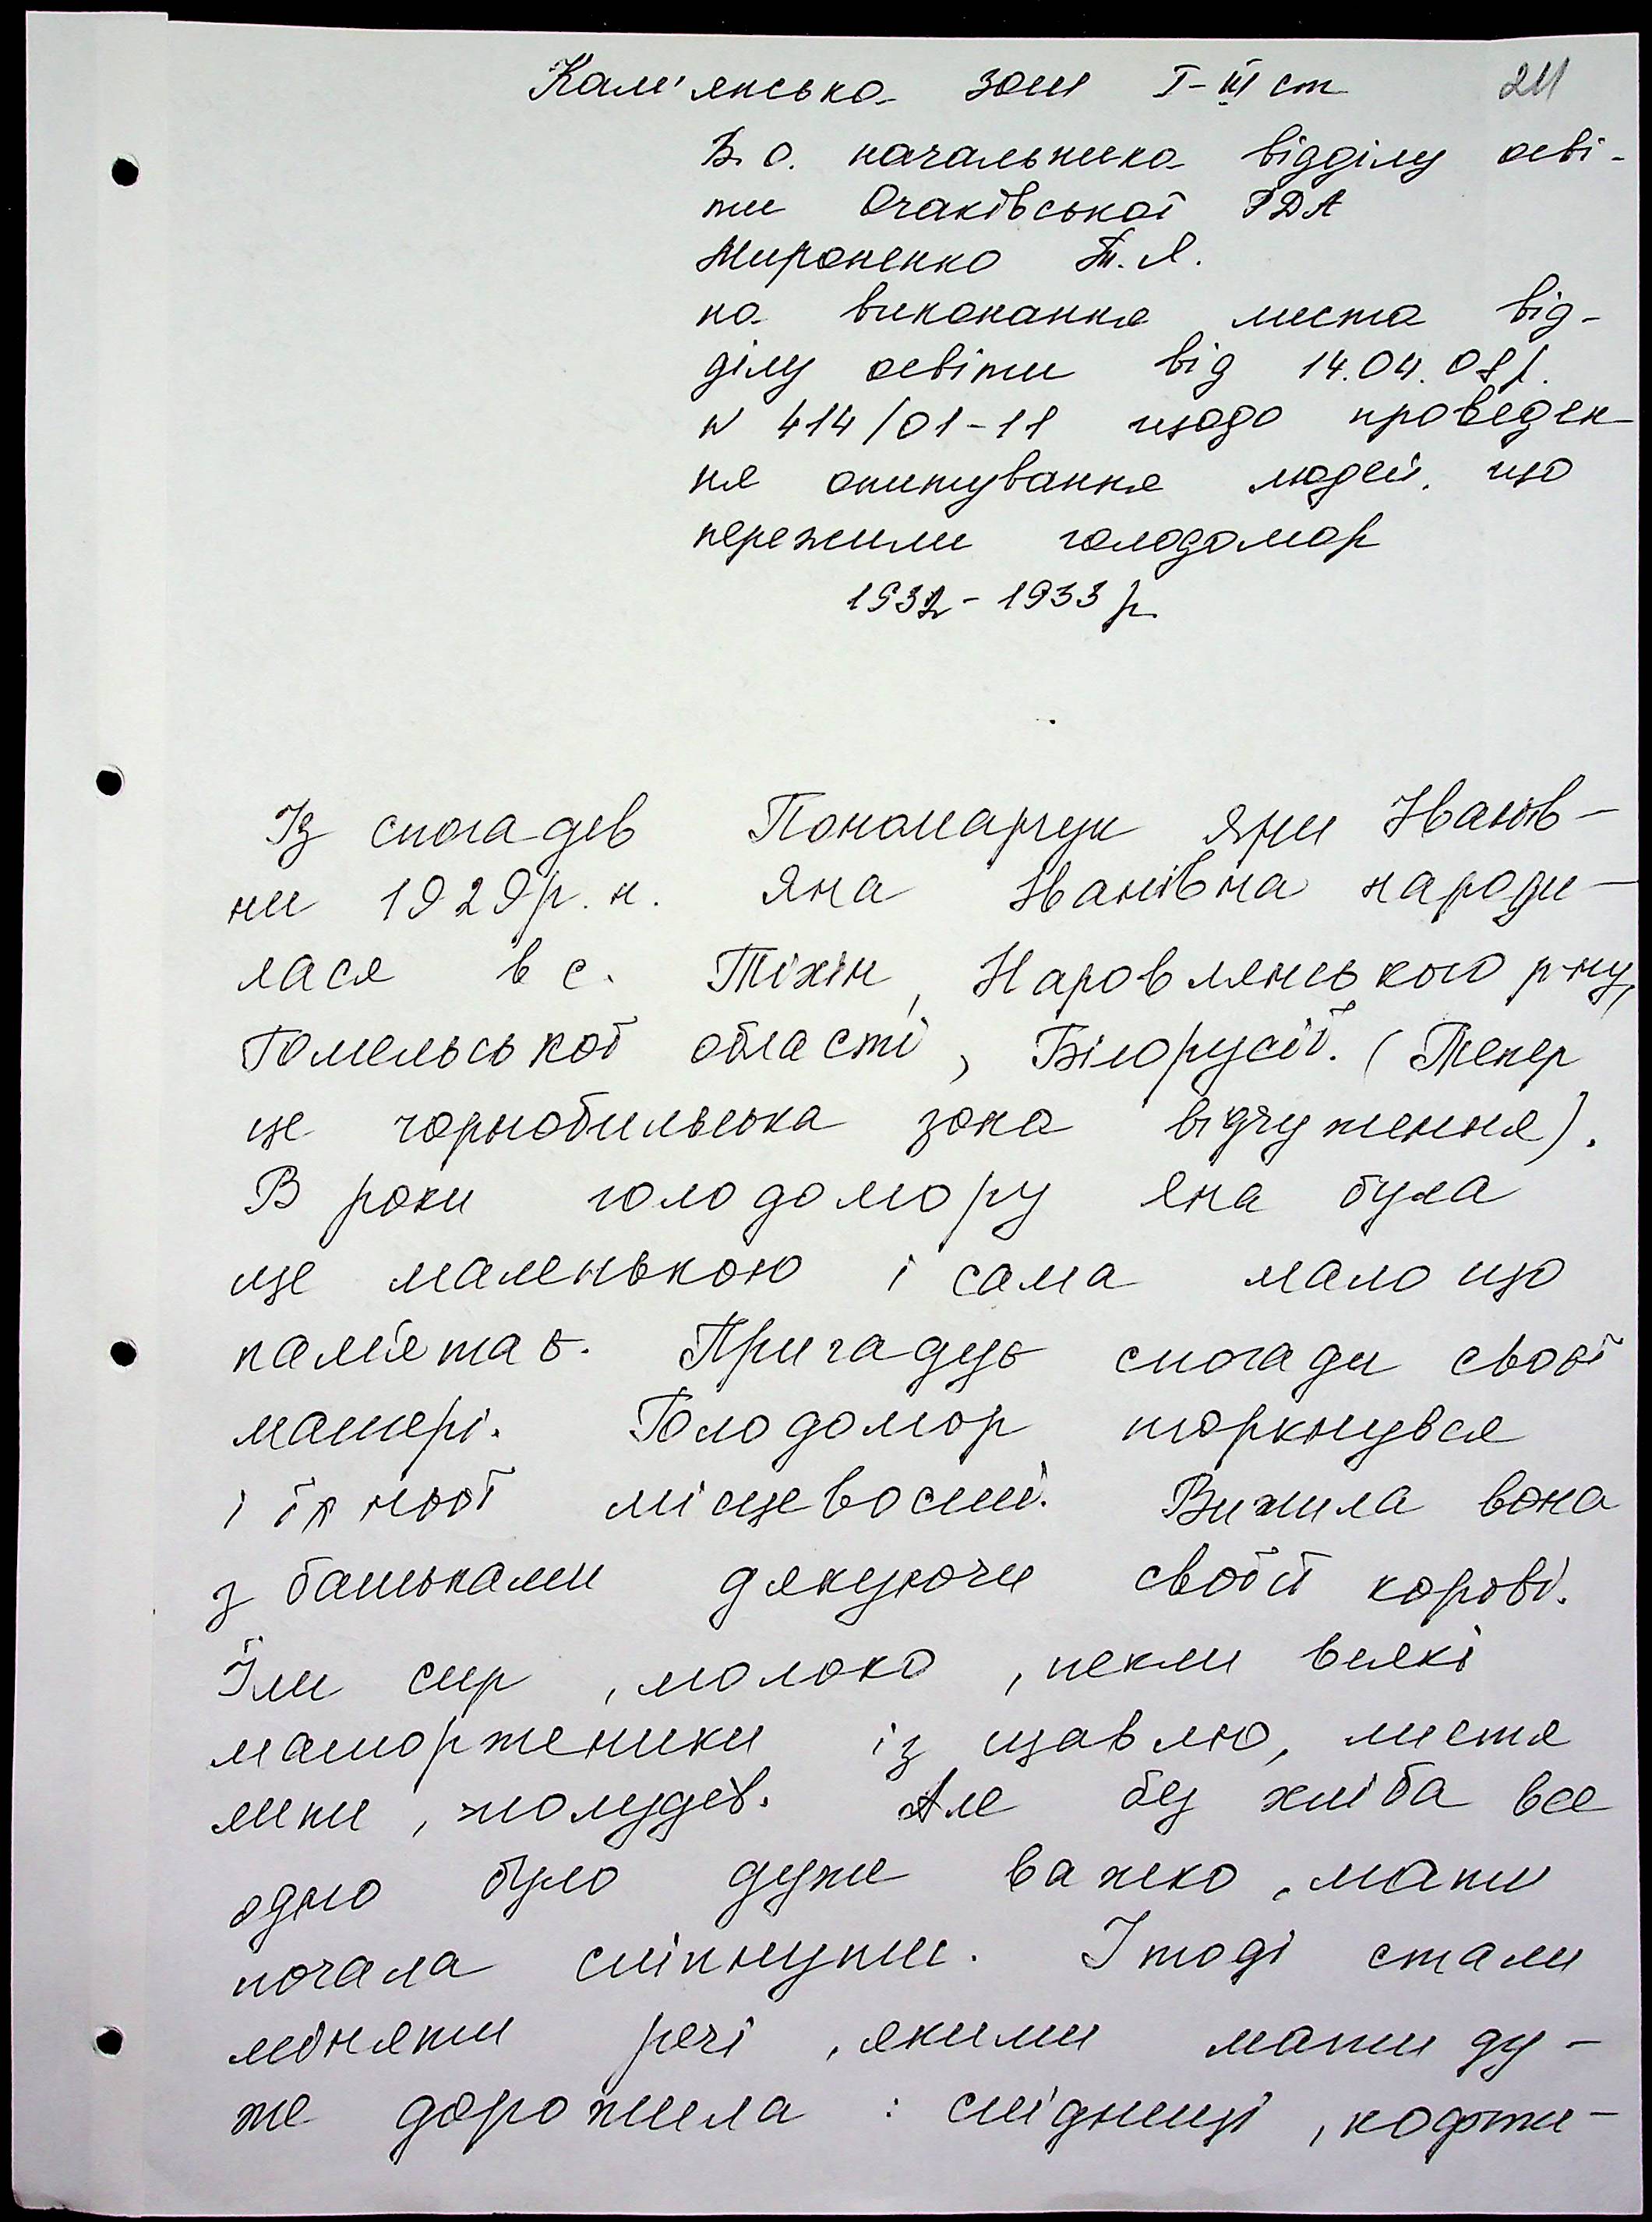 Кам'янська зош I-III ст 211
В.о. начальника відділу осві-
ти Очаківської РДА
Мироненко Т.Я.
на виконання листа від-
ділу освіти від 14.04.08р.
N 414/01-11 щодо проведен-
ня опитування людей, що
пережили голодомор
1932-1933 р.
Із спогадів Пономарчук Яни Іванів-
ни 1929р.н. Яна Іванівна народи-
лася в с. Тіхін, Наровлянського р-ну,
Гомельської області, Білорусії. (Тепер
це чорнобильська зона відчуження).
В роки голодомору Яна була
ще маленькою і сама мало що
пам'ятає. Пригадує спогади своєї
матері. Голодомор торкнувся
і їхньої місцевості. Вижила вона
з батьками дякуючи своїй корові.
Їли сир, молоко, пекли всякі
маторженики із щавлю, листя
липи, жолудів. Але без хліба все
одно було дуже важко, мати
почала сліпнути. І тоді стали
міняти речі, якими мати ду-
же дорожила: спідниці, кофти-